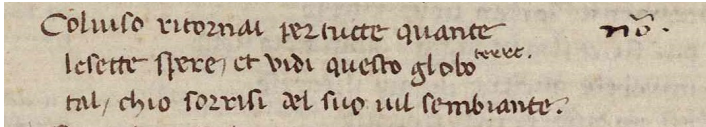 Coluiso ritornai per tutte quante nõ.
lesette spere, et vidi questo globo terre.
tal, chio sorrisi del suo uil sembiante.